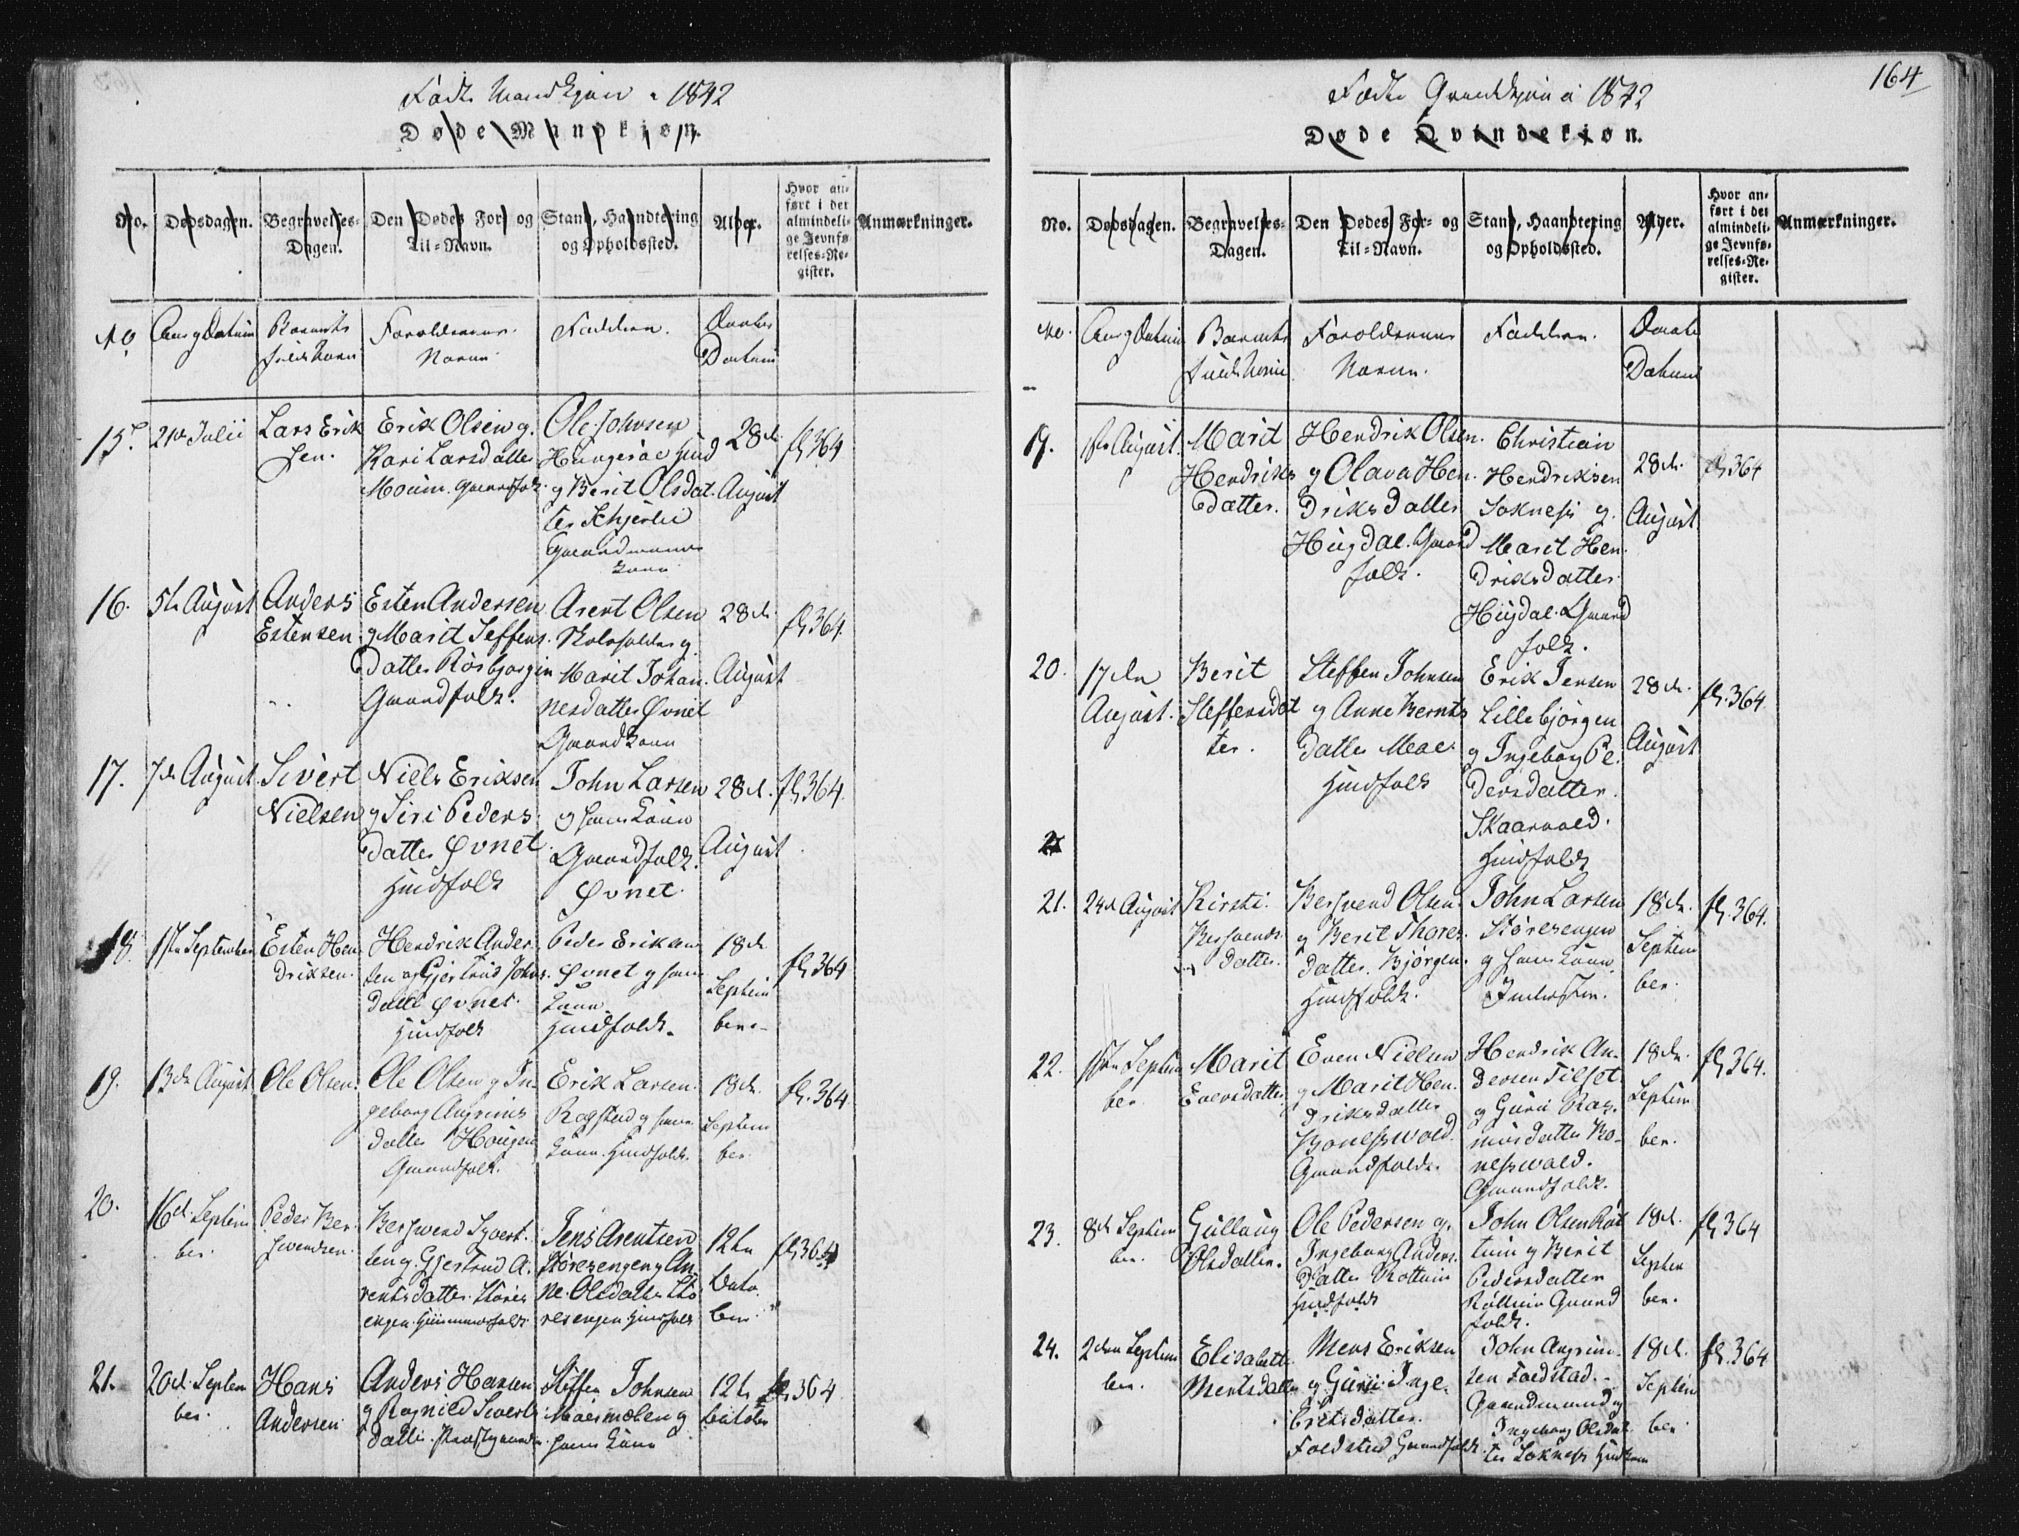 Fødte Mandkjøn 1842
Døde Mandkiøn.
No.
Dødsdagen.
Begravelses-
Dagen.
Den Dødes For- og
Til-Navn.
Stand, Haandtering
og Opholdssted.
Alder.
Hvor an-
ført i det
almindeli-
ge Jevnfø-
relses-Re-
gister.
Anmærkninger.
No
Aar og Datum
Barnets
fulde Navn
Forældrenes
Navne
Faddere.
Daabs
Datum
15.
21de Julii
Lars Erik
sen.
Erik Olsen g.
Kari Larsdatter
Moum. Gaardfolk.
Ole Johnsen
Haugeraae
g Berit Olsdat
ter
Gaardmands
Kone
28de
August
fl 364
16.
5te August
Anders
Estensen
Esten Andersen
g Marit Steffens
Datter Rosbjørgen
Gaardfolk.
Arent Olsen
g.
Marit Johan
nesdatter Øvnet
Gaard Kone
28de
August
fl 364.
17.
7de August
Sivert
Nielsen
Niels Eriksen
g Siri Peders
Datter Øvnet
Huusfolk
John Larsen
g hans Kone
Gaardfolk.
Øvnet.
28d.
August
fl 364.
18.
1ste September
Esten Hen
driksen.
Hendrik Ander
sen og Gjertrud Johns
Datter Øvnet.
Huusfolk
Peder Eriksen
Øvnet g hans
Kone
Huusfolk.
18de
Septem
ber.
fl 364
19.
13de August
Ole Olsen.
Ole Olsen g In
geborg Angrims
datter Hougen
Gaardfolk.
Erik Larsen
Rogstad g hans
Kone. Huusfolk.
18de
Septem
ber.
fl. 364
20.
16d. Septem
ber.
Peder Ber
svendsen.
Bersvend Syvert
sen g. Gjertrud A
rentsdatter Støres
engen
Jens Arentsen
Størezengen g An
ne Olsdatter Stø
resengen Huusfolk
12te
Octo
ber.
fl 364
21.
20d. Septem
ber.
Hans
Andersen
Anders Hansen
g Ragnild Siverts
datter.
Steffen Johnsen
Moesmælen g
hans Kone
12te
October
fl 364
164
Fødte Qvindekjøn i 1842
Døde Qvindekiøn.
No.
Dødsdagen.
Begravelses-
Dagen.
Den Dødes For- og
Til-Navn.
Stand, Haandtering
og Opholdssted.
Alder.
Hvor an-
ført i det
almindeli-
ge Jevnfø-
relses-Re-
gister.
Anmærkninger.
No.
Aar og Datum
Barnets
fulde Navn
Forældrenes
Navne.
Faddere.
Daabs
Datum
19.
1ste August.
Marit
Hendriks
Datter.
Hendrik Olsen.
g Olava Hen
Driksdatter
Hugdal. Gaard
folk.
Christian
Hendriksen
Sokness g.
Marit Hen
Driksdatter
Hugdal. Gaard
folk.
28de.
August
fl 364
20.
17de
August.
Berit
Steffensdat
ter.
Steffen Johnsen
g Anne Bernts
Datter Moe
Huusfolk
Erik Jensen
Lillebjørgen
g Ingeborg Pe
Dersdatter
Skaarvold.
Huusfolk
28de.
August
fl. 364.
21
21.
24de August
Kirsti
Bersvends
datter.
Bersvend Olsen
g Berit Thores
datter. Bjørgen
Huusfolk.
John Larsen
Størezengen
g hans Kone.
18de.
Septem
ber.
fl. 364.
22.
1ste Septem
ber
Marit
Evensdatter
Even Nielsen
g Marit Hen
driksdatter
Bonesswold.
Gaardfolk.
Hendrik An
dersen Tilset
g Guru Ras
musdatter Bo
nesswold.
Gaardfolk.
18de.
Septem
ber.
fl 364.
23.
8de Septem
ber.
Gullaug
Olsdatter.
Ole Pedersen g.
Ingeborg Anders
Datter Rottum
Huusfolk
John Olsen Rot
tum g Berit
Pedersdatter
Rottum Gaard
folk.
18d.
Septem
ber.
fl 364
24.
2den Septem
ber.
Elisabeth
Mentsdatter
Mens Eriksen
g Guru Inge
britsdatter.
Foldstad Gaardfolk.
John Angrim
sen Foldstad.
Gaardmand g
Ingeborg Olsdat
ter Sokness
18d.
Septem
ber
fl. 364